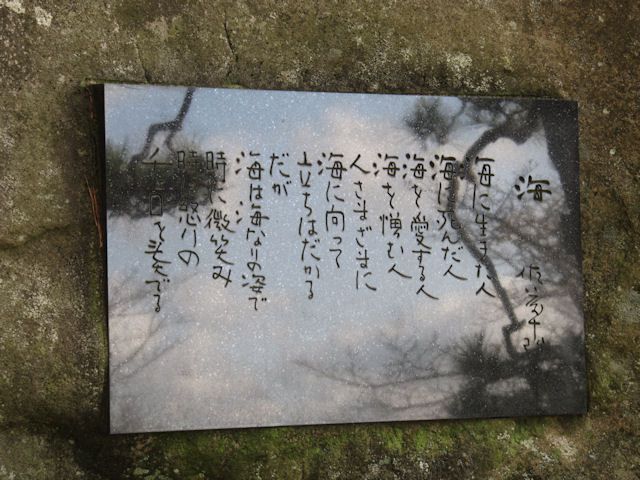 海
海に生きた人
海に死んだ人
海を愛する人
海を憎む人
人さまざまに
海に向って
立ちはだかる
だが
海は海なりの姿で
時に微笑み
時に怒りの
千日を奏でる